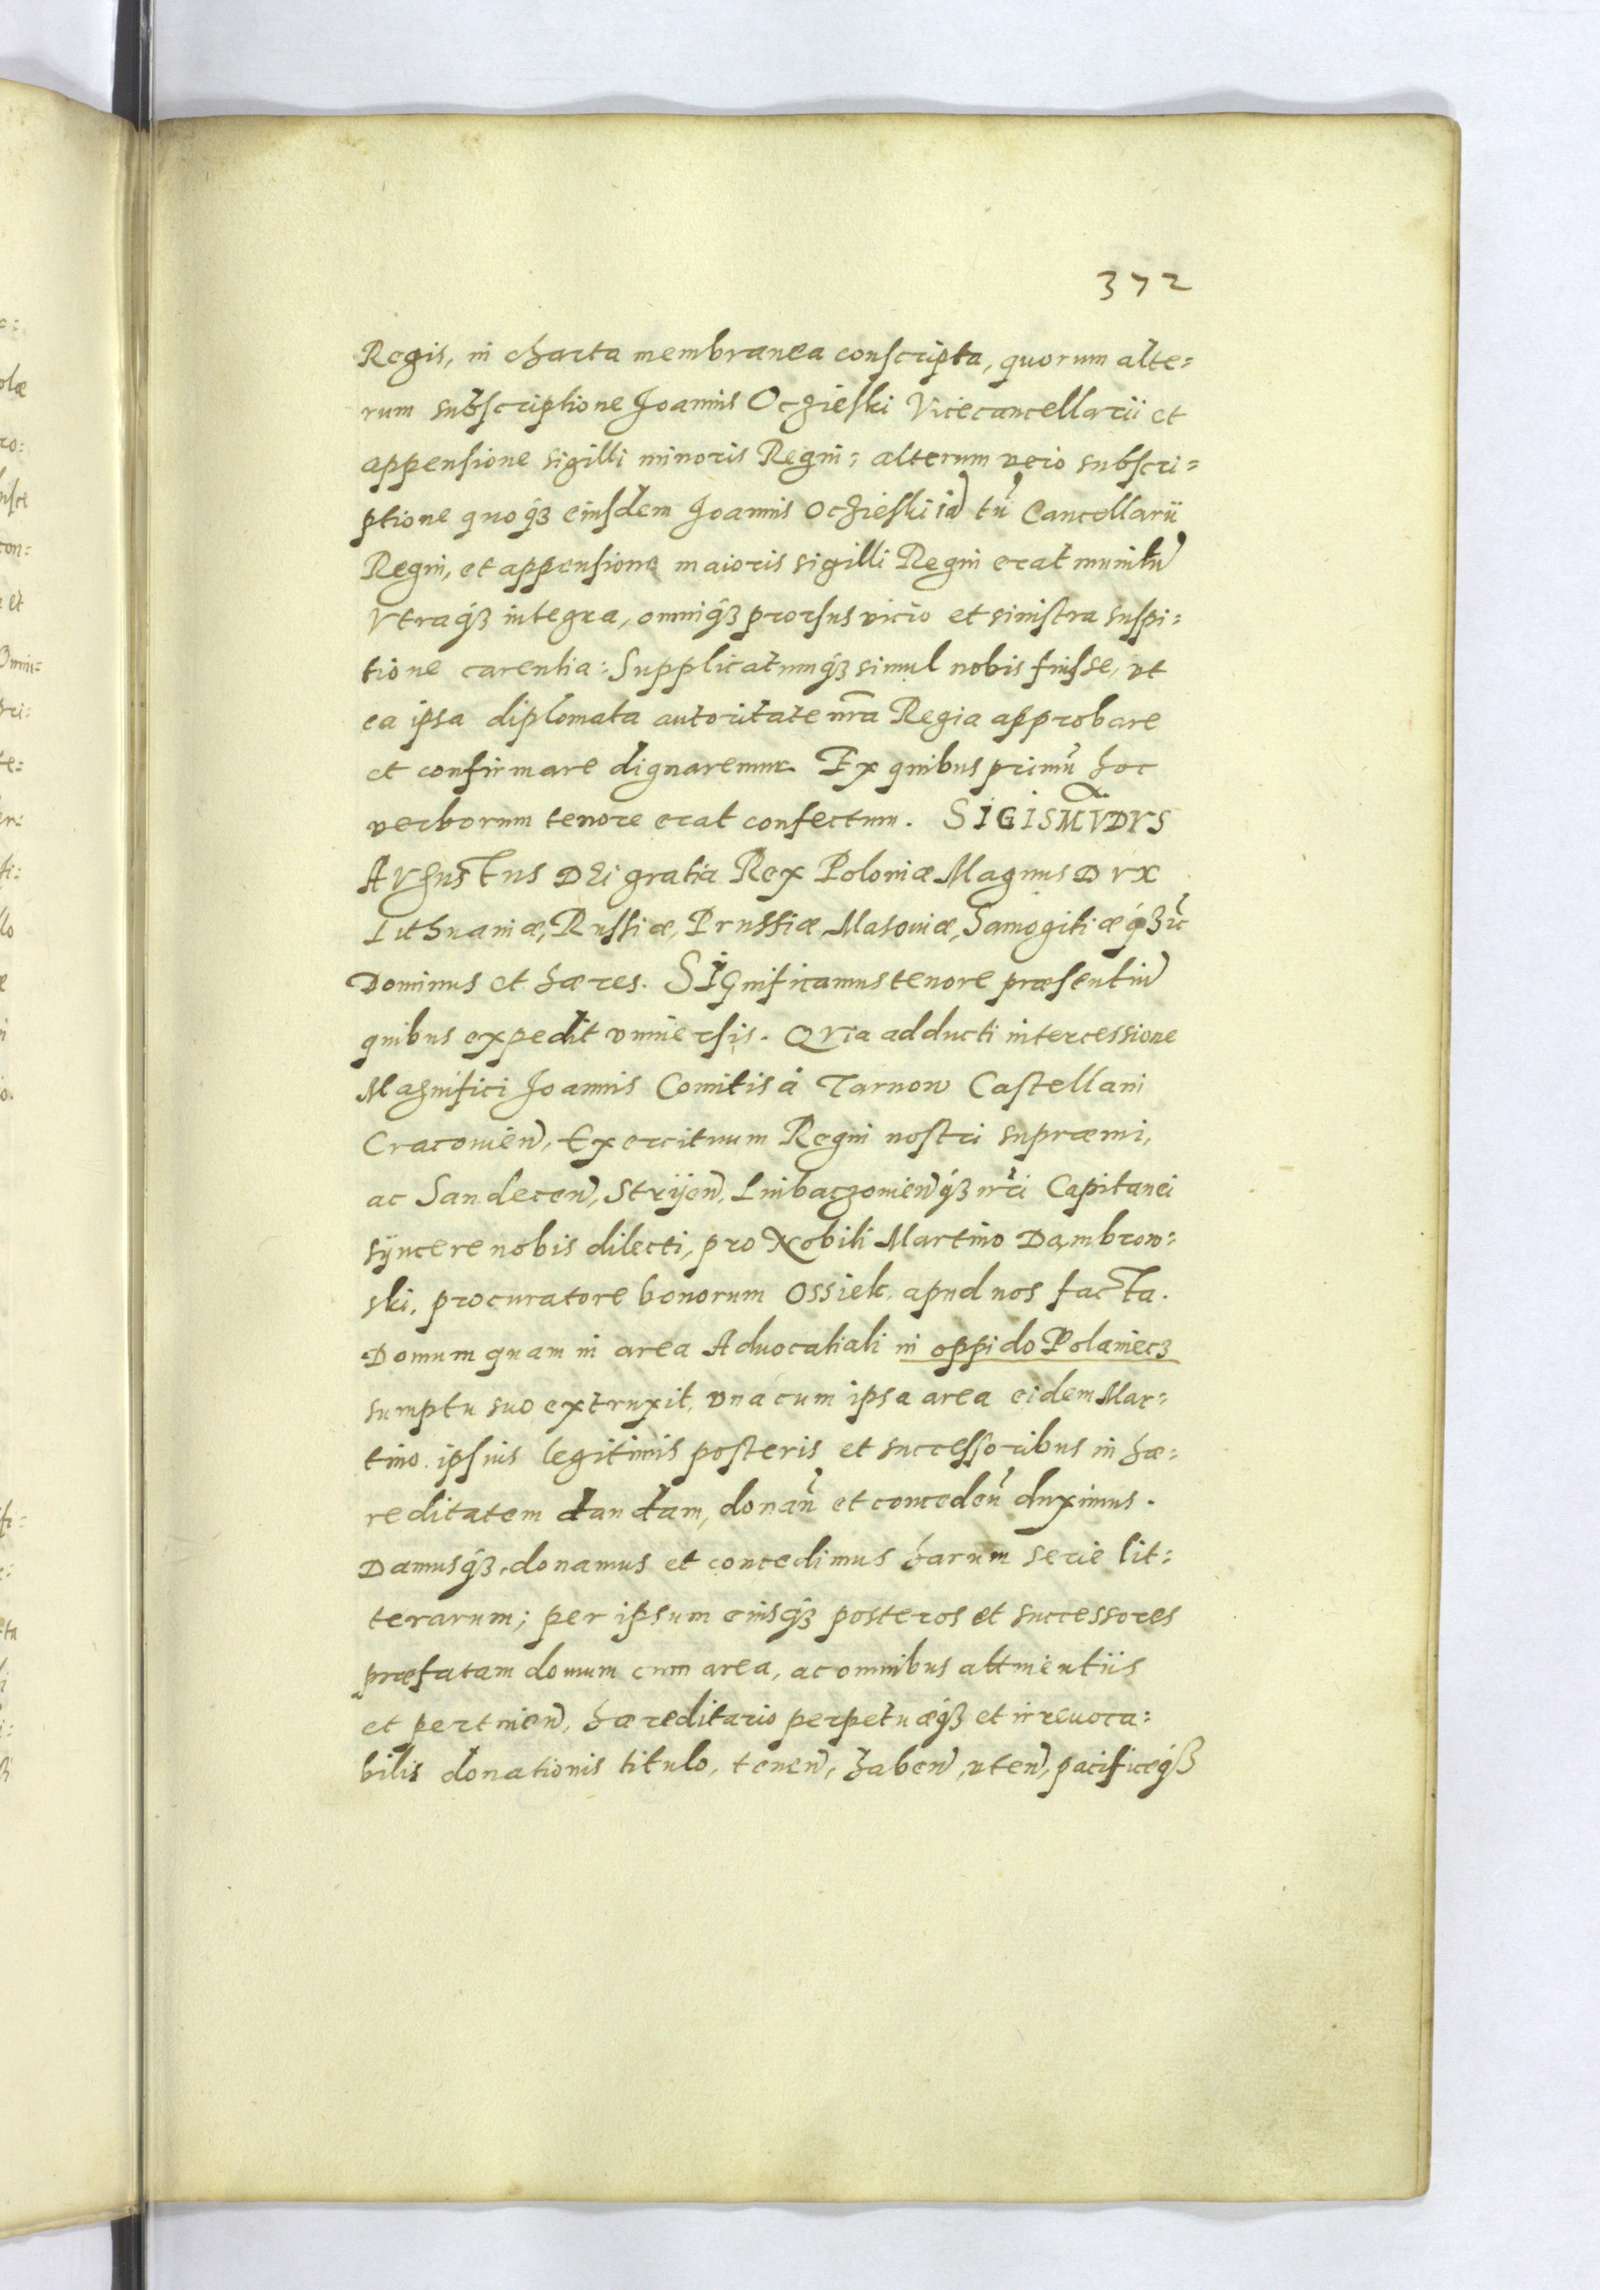 372
Regis, in charta membranea conscripta, quorum alte=
rum subscriptione Joannis Oczieski Vicecancellarii et
appensione sigilli minoris Regni: alterum vero subscri=
ptione quoq3 eiusdem Joannis Oczieski iā tū Cancellarii
Regni, et appensione maioris sigilli Regni erat munitū
Vtraq3 integra, omniq3 prorsus vicio et sinistra suspi=
tione carentia: Supplicatumq3 simul nobis fuisse, vt
ea ipsa diplomata autoritate nrā Regia approbare
et confirmare dignaremur Ex quibus primū hoc
verborum tenore erat confectum. SIGISMVDVS
AVgusTus DEi gratia Rex Poloniæ Magnus DVX
Lithuaniæ, Russiæ, Prussiæ, Masouiæ, Samogitiæ q3 ic̃
Dominus et hæres. SIGnificamus tenore præsentiū
quibus expedit vniuersis. QVia adducti intercessione
Magnifici Joannis Comitis à Tarnow Castellani
Cracouien, Exercituum Regni nostri supræmi,
ac Sandecen, Stryen, Lubaczouien q3 nrĩ Capitanei
syncere nobis dilecti, pro Nobili Martino Dąmbrow=
ski, procuratore bonorum Ossiek, apud nos facta.
Domum quam in area Aduocatiali in oppido Polaniecz
sumptu suo extruxit, vna cum ipsa area eidem Mar=
tino. ipsius legitimis posteris et successoribus in hæ=
reditatem dandam, donań et conceden̄ duximus.
Damusq3, donamus et concedimus harum serie lit=
terarum; per ipsum eiusq3 posteros et successores
præfatam domum cum area, ac omnibus attinentiis
et pertinen, hæreditario perpetuæq3 et irreuoca=
bilis donationis titulo, tenen, haben, vten, pacificeq3